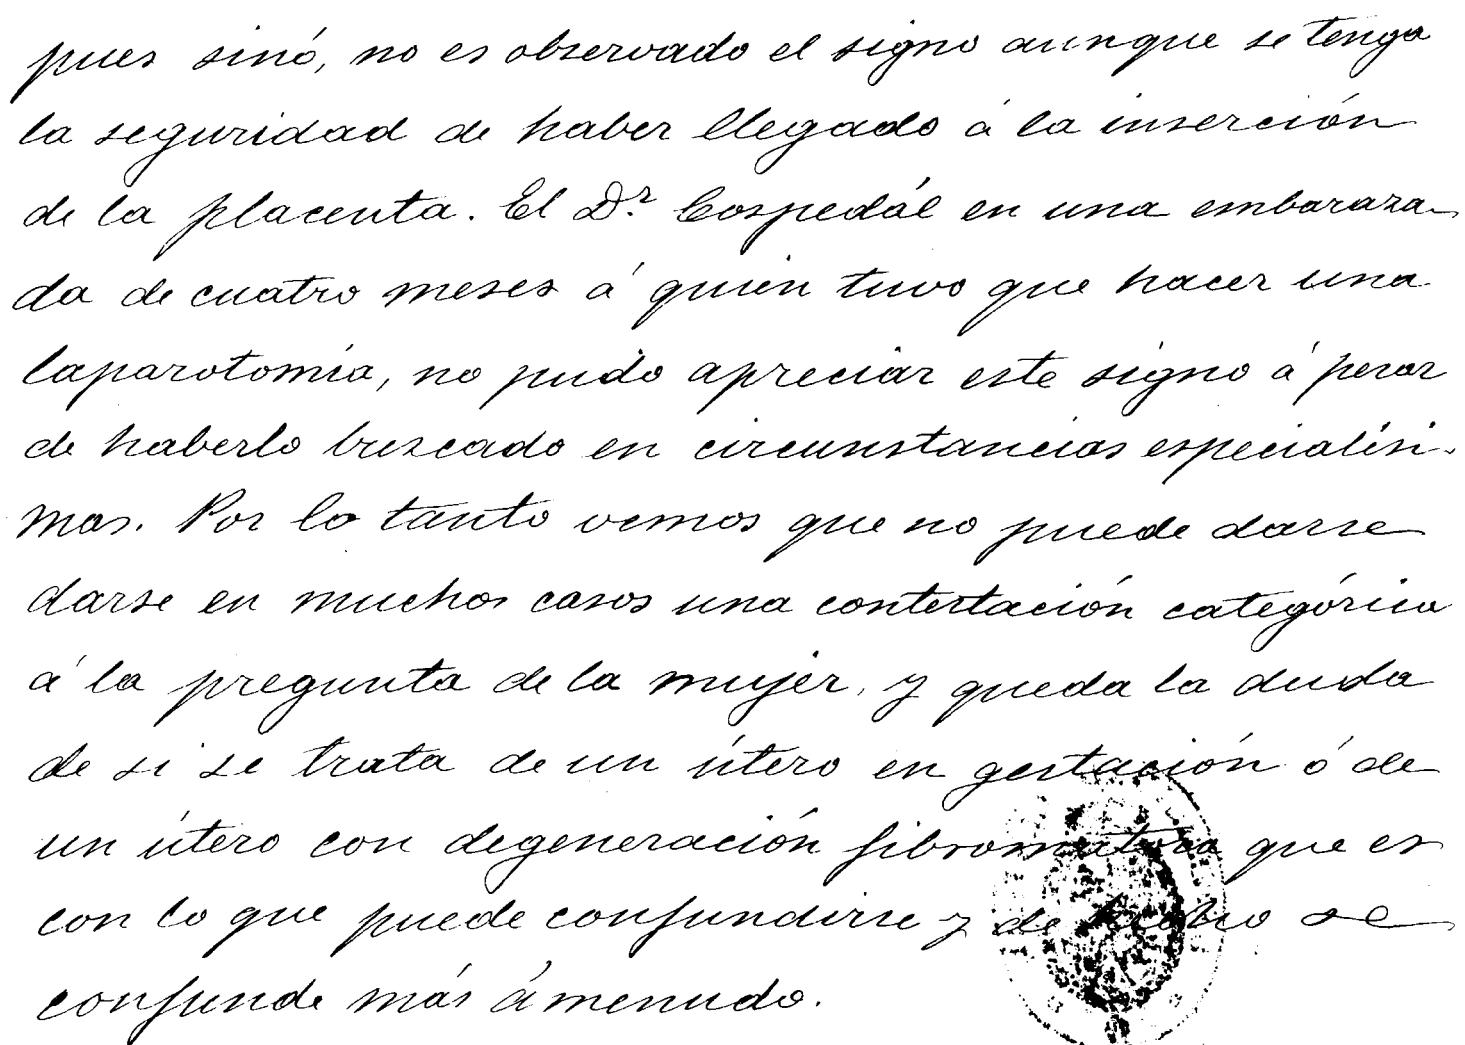 pues sinó, no es observado el signo aunque se tenga
la seguridad de haber llegado á la inserción
de la placenta. El Dr. Cospedál en una embaraza-
da de cuatro meses á quien tuvo que hacer una
laparotomía, no pudo apreciar este signo á pesar
de haberlo buscado en circunstancias especialísi-
mas. Por lo tanto vemos que no puede darse
darse en muchos casos una contestación categórica
á la pregunta de la mujer, y queda la duda
de si se trata de un útero en gestación ó de
un útero con degeneración fibromatosa que es
con lo que puede confundirse y de hecho se
confunde más á menudo.